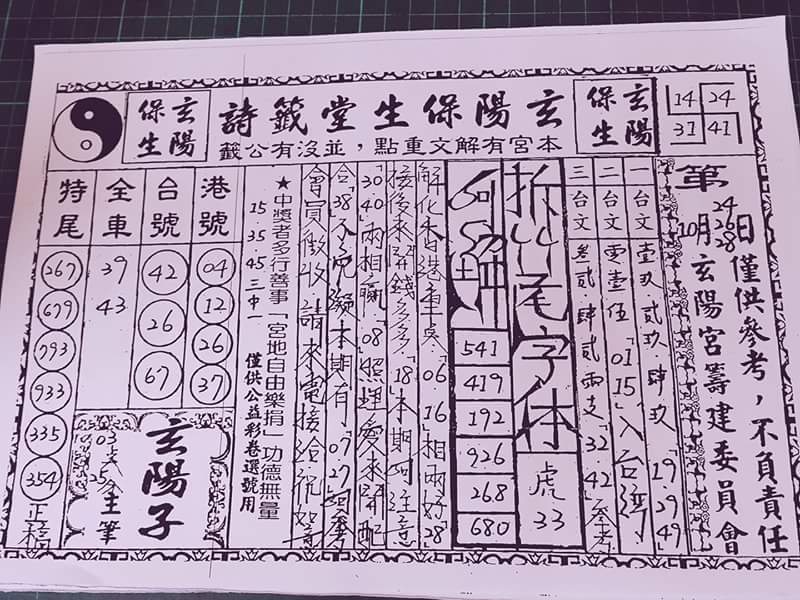 玄陽保生堂籤詩
本宮有解文重點，並沒有公籤
玄陽
保生
玄陽
保生
14 24
31 41
第 24 26 28 日僅供參考，不負責任
10月玄陽宮籌建委員會
一台文 壹玖.貳玖.肆玖「19.29.49」
二台文 零壹伍「01.15」入台灣
三台文 叁貳.肆貳兩支「32.42」參考
拆 尾字体
虎
33
541
419
192
926
268
680
「06.16」相兩好「28」
接後來 錢多多「18」本期 注意
「30.40」兩相贏「08」照理愛來開配
合「38」不免疑本期有「07.27」
會員做收 請來電接給祝賀
★中獎者多行善事「宮地自由樂捐」功德無量
15 35 45 三中一
僅供公益彩卷選號用
港號
04
12
26
37
台號
42
26
67
全車
39
43
特尾
267
699
793
933
335
354
玄陽子
主筆
03
25